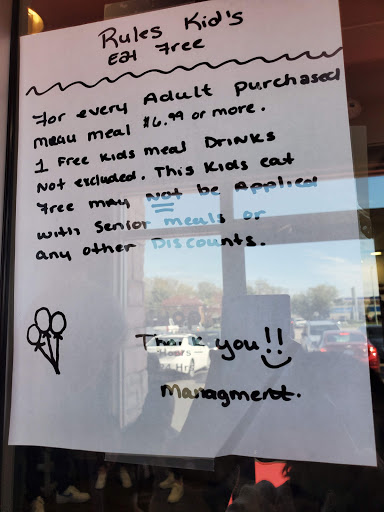 Rules Kid's
Eat Free
For every Adult purchased
menu meal $6.99 or more.
1 Free Kids meal Drinks
Not excluded. This Kids eat
Free may Not be Applied
with Senior meals or
any other Discounts.
Thank you!!
Managment.
Hours
24 Hr